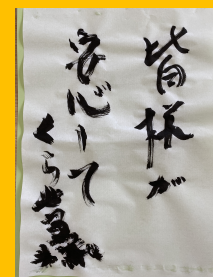 皆様が
安心して
くらせる